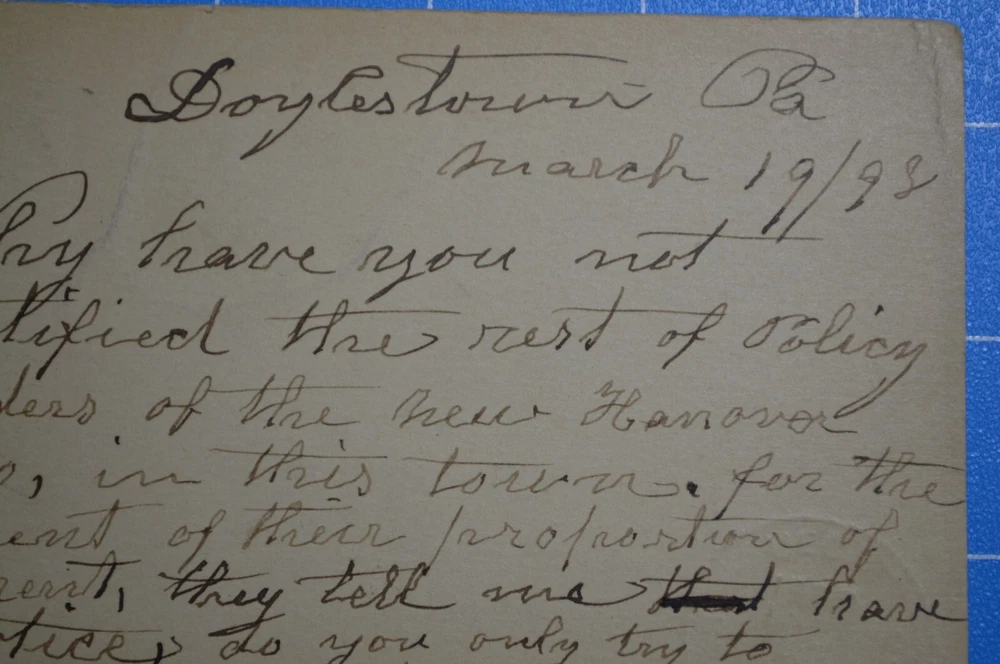 Doylestown Pa
March 19/93
hy have you not
tified the rest of Policy
ders of the New Hanover
o, in this town. for the
ent of their proportion of
rent, they tell me have
tice, do you only try to